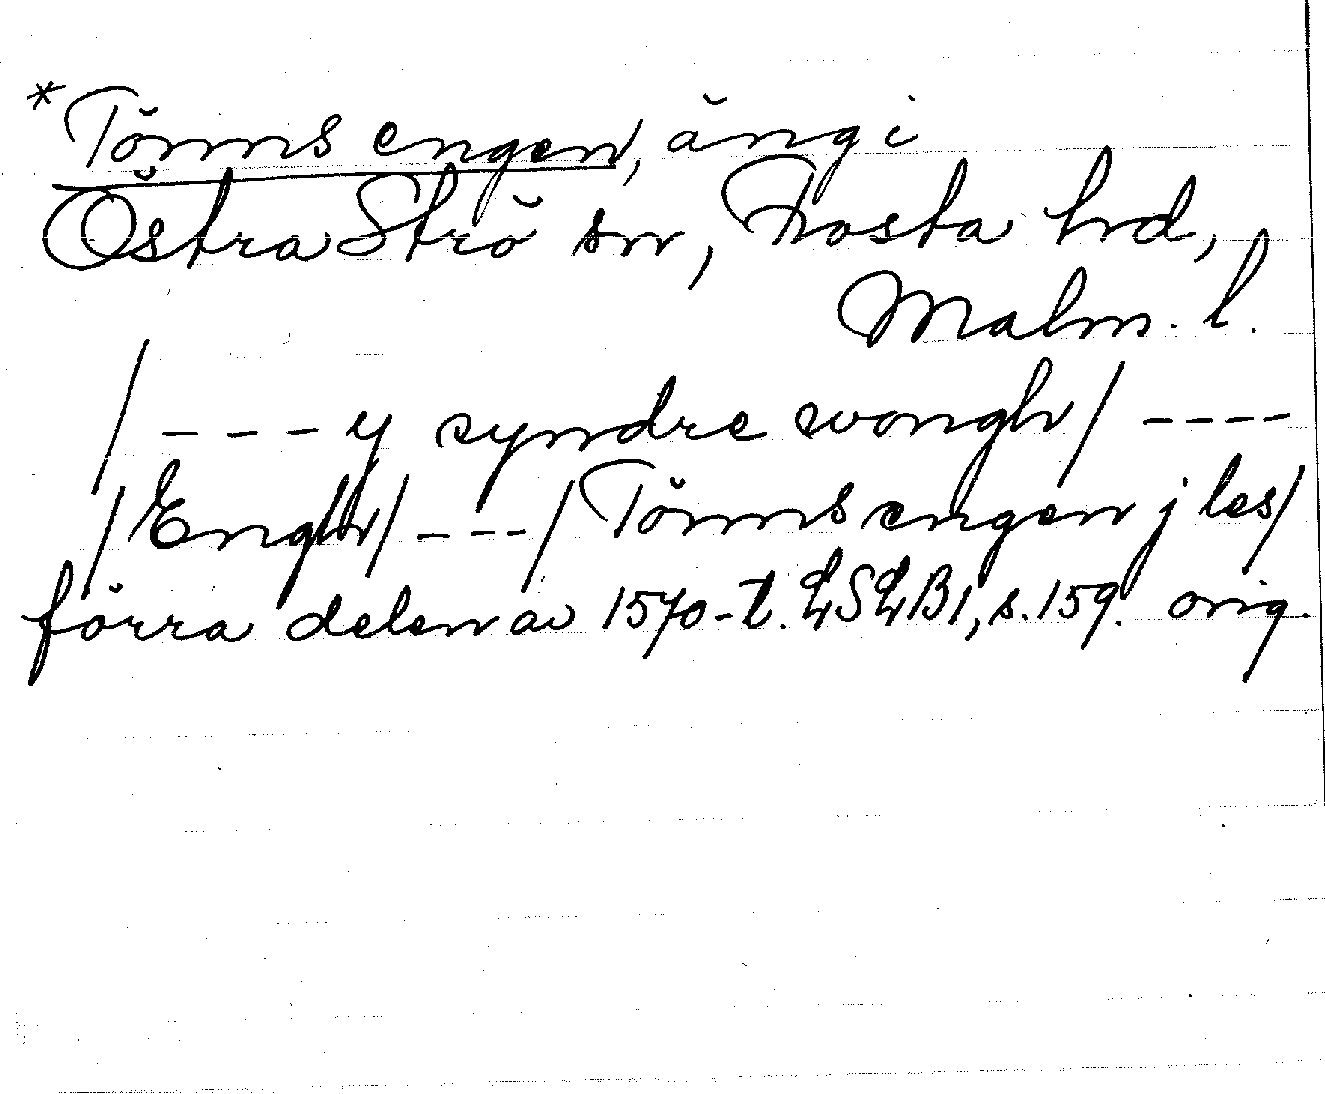 *Tönms engen, äng i
Östra Strö sn, Frosta hrd,
Malm. l.
/ - - - y syndre wongh/ - - - -
/Engh/ - - - /Tönms engen j les/
förra delen av 1570-t. LSLB1, s.159. orig.